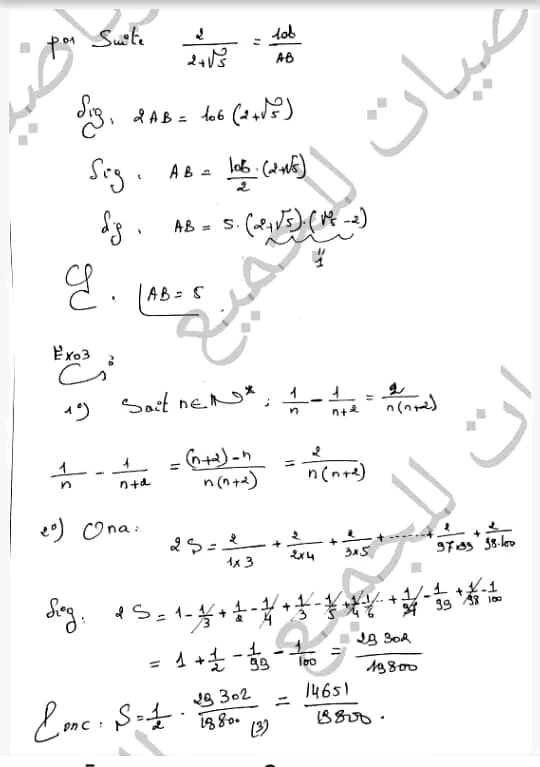 par Suite 2/(2+√5) = 10b/AB
Sig, 2AB = 10b(2+√5)
Sig, AB = 10b/2 · (2+√5)
Sig, AB = 5·(2+√5)·(√5-2)
"
1
AB = 5
Exo3 :
1°) Soit n∈N*; 1/n - 1/(n+2) = 2/(n(n+2))
1/n - 1/(n+2) = ((n+2)-n)/(n(n+2)) = 2/(n(n+2))
2°) On a: 2S = 2/(1x3) + 2/(2x4) + 2/(3x5) + ...... + 2/(97x99) + 2/(98·100)
Sig: 2S = 1 - 1/3 + 1/2 - 1/4 + 1/3 - 1/5 + 1/4 - 1/6 .. + 1/97 - 1/99 + 1/98 - 1/100
= 1 + 1/2 - 1/99 - 1/100 = 29302/19800
Donc: S = 1/2 · 29302/19800 = 14651/19800 .
(3)